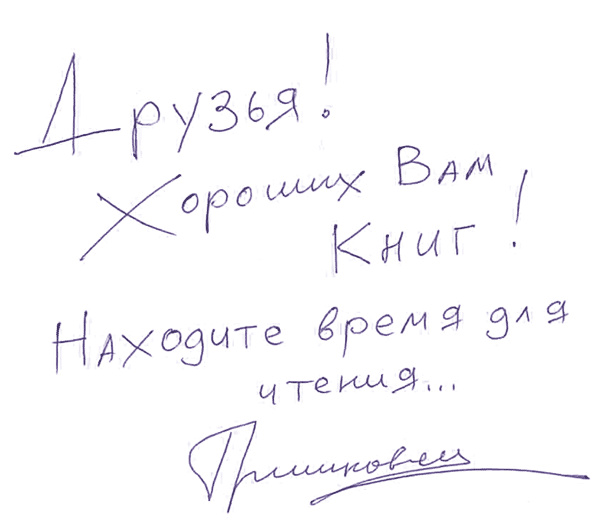 Друзья!
Хороших Вам
Книг!
Находите время для
чтения...